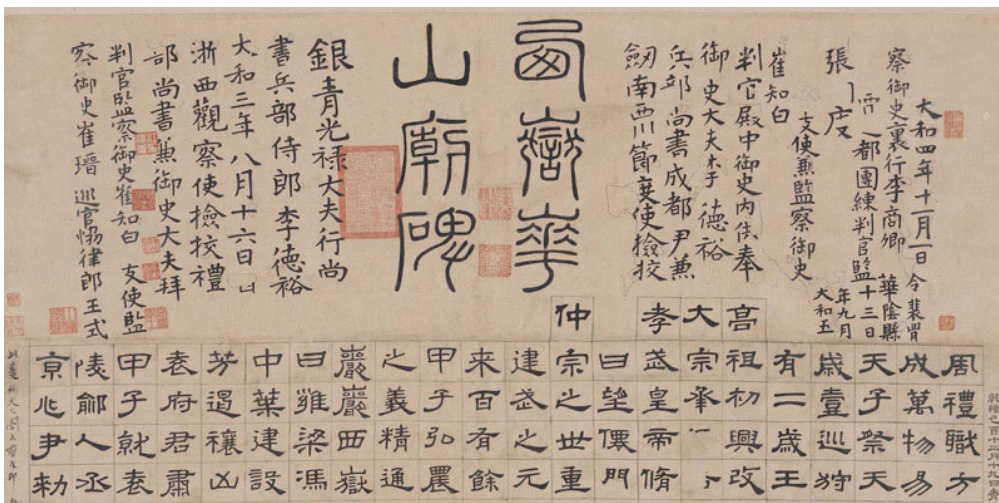 大和四年十一月一日
令裴胃
察御史裏行李商卿
華陰縣
都團練判官監
十三日
年九月
大和五
張
支使兼監察御史
崔知白
判官殿中御史内供奉
御史大夫李德裕
兵部尚書成都尹兼
劒南西川節度使撿挍
西嶽華
山廟碑
銀青光禄大夫行尚
書兵部侍郎李德裕
大和三年八月十六日
浙西觀察使撿挍禮
部尚書兼御史大夫拜
判官監察御史崔知白 支使監
察御史崔瑨 巡官恊律郎王式
周禮職方
成萬物易
天子祭天
歲壹巡狩
有二歲王
高祖初興改
大宗承
孝武皇帝脩
曰望僊門
仲宗之世重
建武之元
來百有餘
甲子弘農
之義精通
巖巖西嶽
曰雍梁馮
中葉建設
芳遏禳凶
袁府君肅
甲子就袁
陵鄃人丞
京兆尹勑